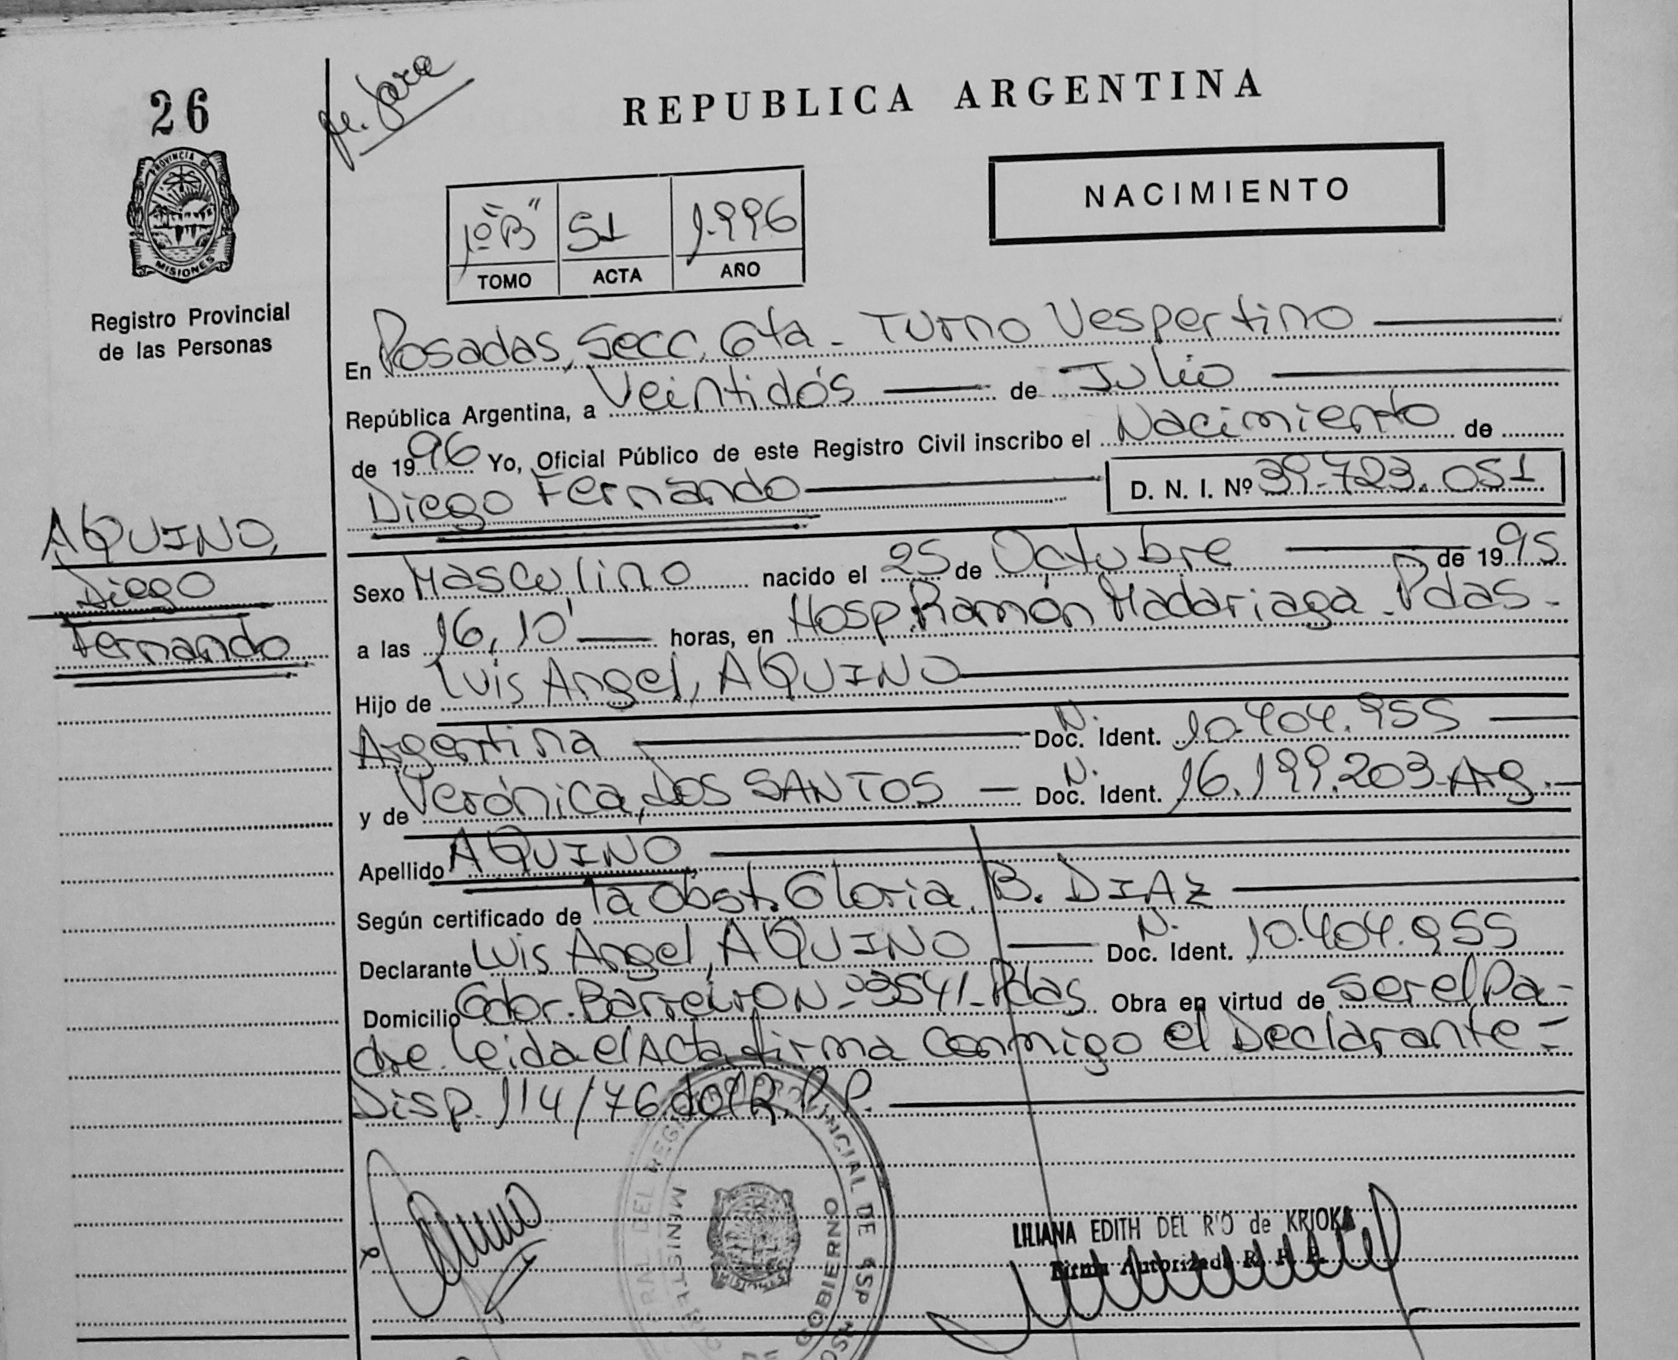 26
REPUBLICA ARGENTINA
PROVINCIA DE
MISIONES
Registro Provincial
de las Personas
1º "B" 51 1.996
TOMO ACTA AÑO
NACIMIENTO
En Posadas, Secc. 6ta - Turno Vespertino
República Argentina, a Veintidós de Julio
de 1996 Yo, Oficial Público de este Registro Civil inscribo el Nacimiento de
Diego Fernando D. N. I. Nº 39.723.051
AQUINO,
Diego
Fernando
Sexo Masculino nacido el 25 de Octubre de 1995
a las 16,10' horas, en Hosp. Ramón Madariaga - Pdas -
Hijo de Luis Angel, AQUINO
Argentina N. Doc. Ident. 10.404.955
y de Verónica, dos SANTOS N. Doc. Ident. 16.199.203 - Arg. -
Apellido AQUINO
Según certificado de la obst. Gloria B. DIAZ
Declarante Luis Angel, AQUINO N. Doc. Ident. 10.404.955
Domicilio Gdor. Barreiro Nº 3541 - Pdas Obra en virtud de ser el Pa-
dre. leida el Acta, firma conmigo el Declarante =
Disp. 114/76 del R.P.P.
LILIANA EDITH DEL RIO de KRIOKA
Firma Autorizada R. P. P.
MINISTERIO DE GOBIERNO